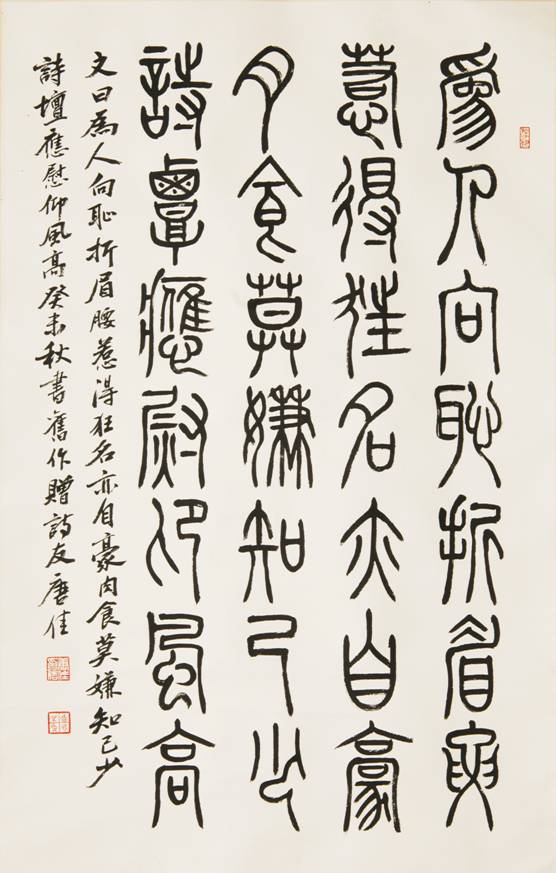 為人向恥折眉腰
惹得狂名亦自豪
肉食莫嫌知己少
詩壇應慰仰風高
文曰為人向恥折眉腰惹得狂名亦自豪肉食莫嫌知己少
詩壇應慰仰風高癸未秋書舊作贈詩友唐佳